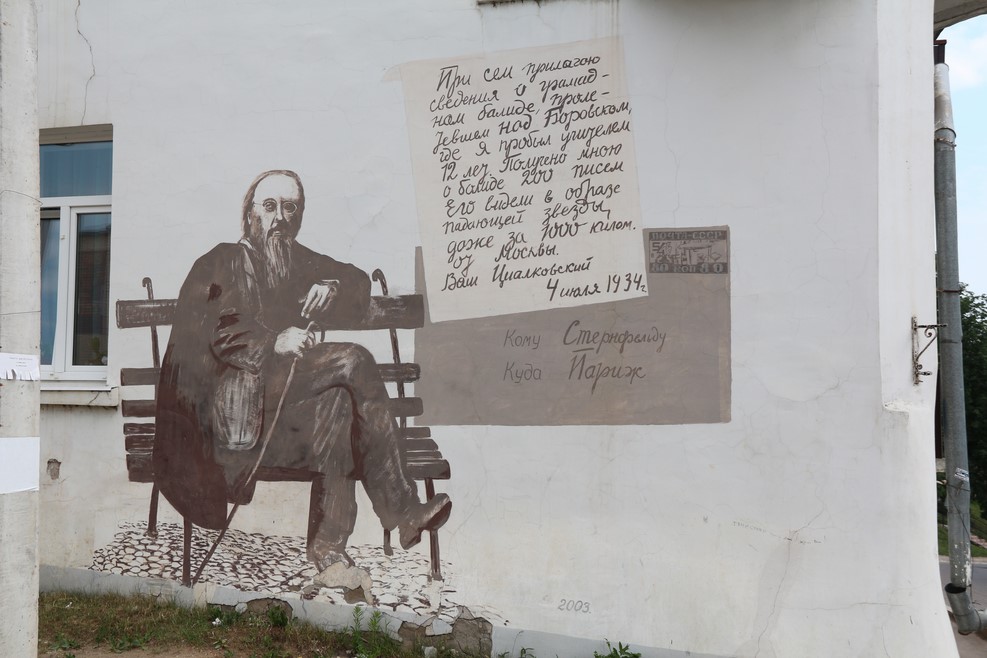 При сем прилагаю
сведения о грамад-
нам балиде, проле-
тевшем над Боровском,
где я пробыл учителем
12 лет. Получено мною
о балиде 200 писем
Его видели в образе
падающей звезды,
даже за 1000 килом.
от Москвы.
Ваш Циалковский
4 июля 1934г
ПОЧТА СССР
80 КОП 80
Кому Стернфельду
Куда Париж
2003.